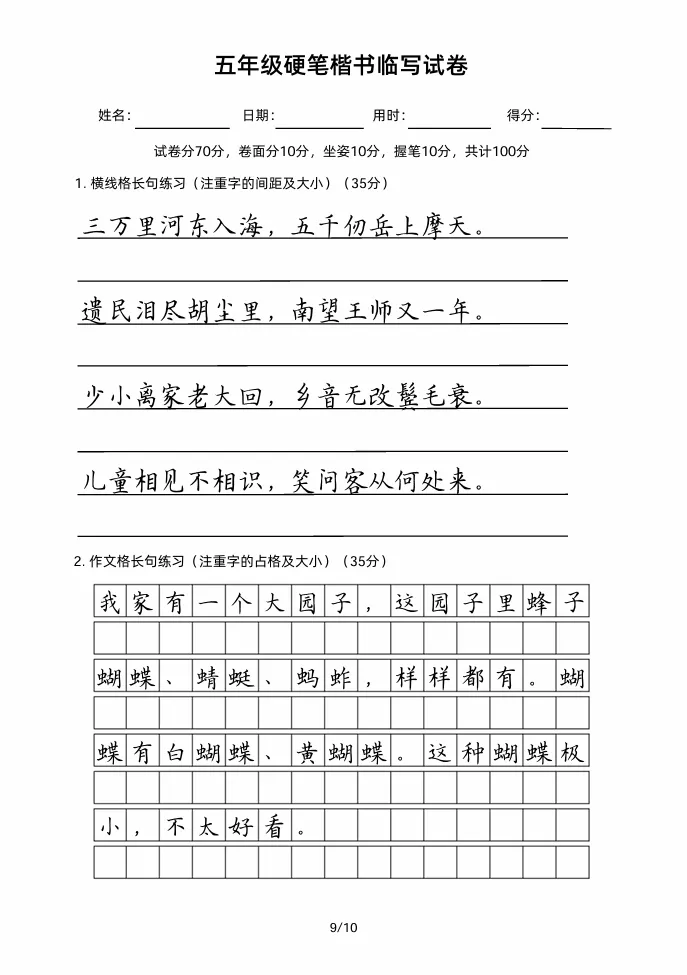 五年级硬笔楷书临写试卷
姓名： 日期： 用时： 得分：
试卷分70分，卷面分10分，坐姿10分，握笔10分，共计100分
1. 横线格长句练习（注重字的间距及大小）（35分）
三万里河东入海，五千仞岳上摩天。
遗民泪尽胡尘里，南望王师又一年。
少小离家老大回，乡音无改鬓毛衰。
儿童相见不相识，笑问客从何处来。
2. 作文格长句练习（注重字的占格及大小）（35分）
我家有一个大园子，这园子里蜂子
蝴蝶、蜻蜓、蚂蚱，样样都有。蝴
蝶有白蝴蝶、黄蝴蝶。这种蝴蝶极
小，不太好看。
9/10